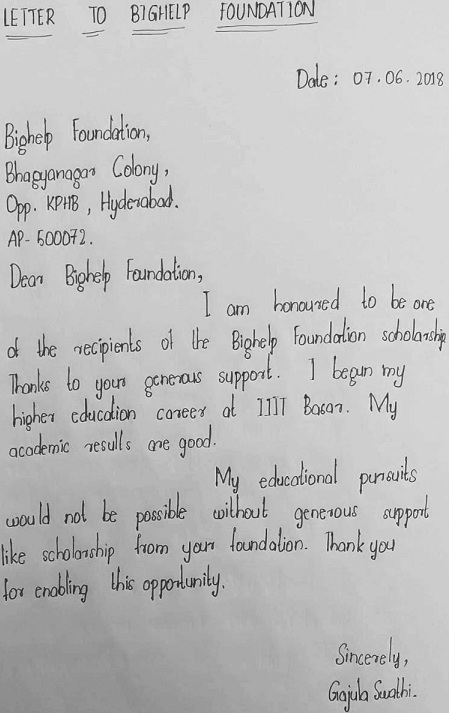 LETTER TO BIGHELP FOUNDATION
Date: 07.06.2018
Bighelp Foundation,
Bhagyanagar Colony,
Opp. KPHB, Hyderabad.
AP-500072.
Dear Bighelp Foundation,
I am honoured to be one
of the recipients of the Bighelp Foundation scholarship
Thanks to your generous support. I begun my
higher education career at IIIT Basar. My
academic results are good.
My educational pursuits
would not be possible without generous support
like scholarship from your foundation. Thank you
for enabling this opportunity.
Sincerely,
Gajula Swathi.